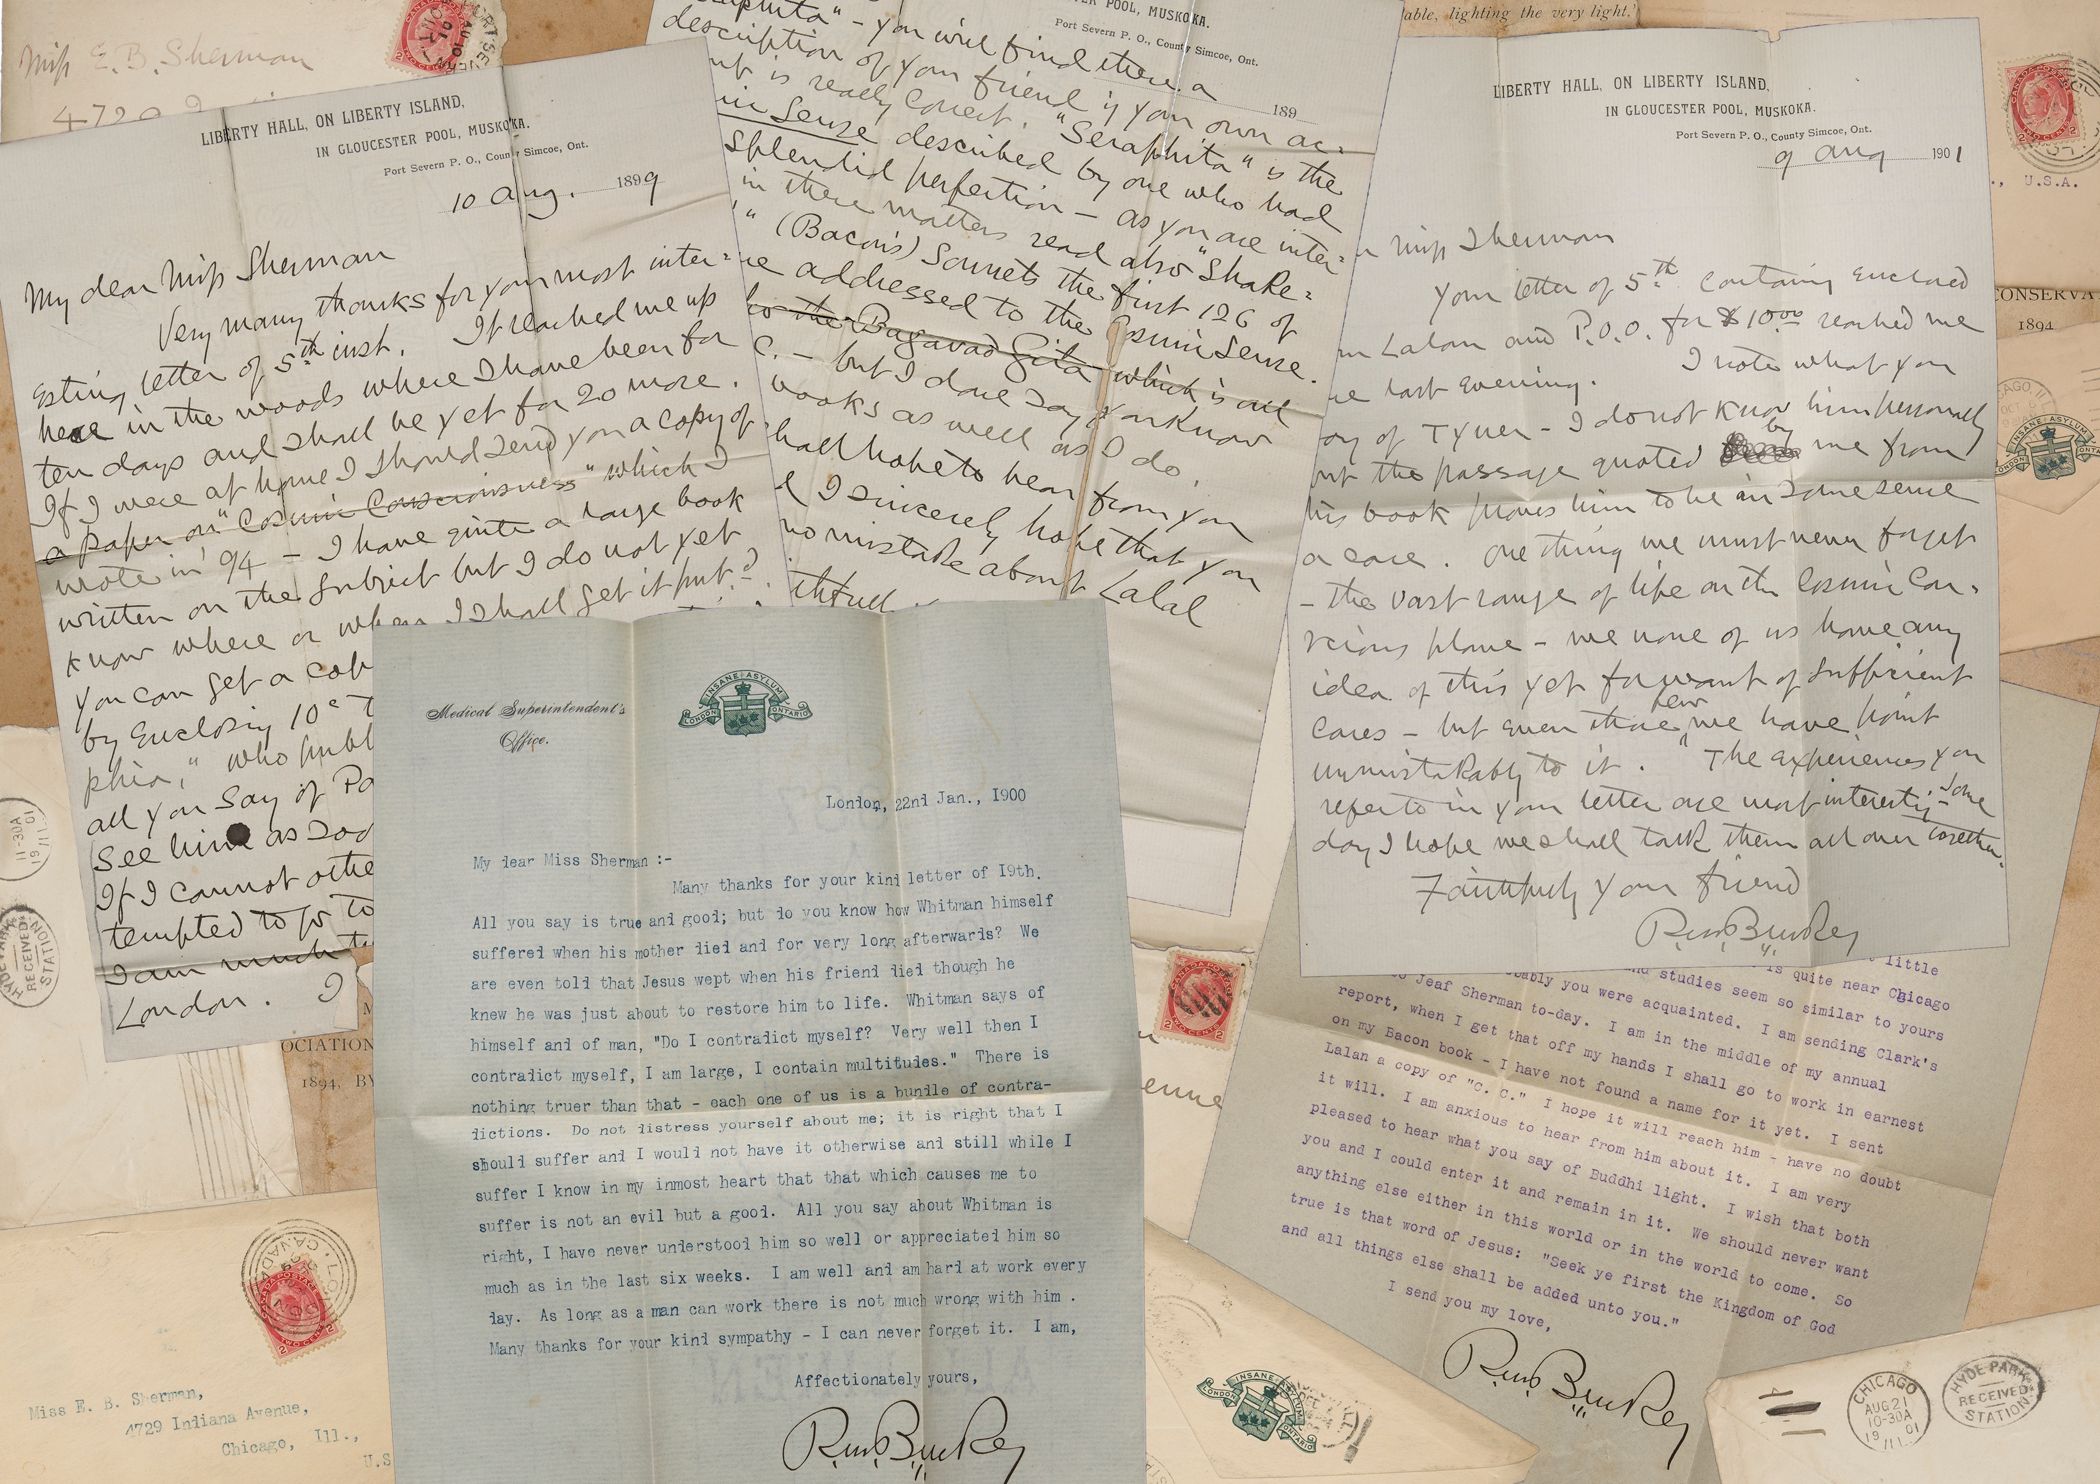 Miss E. B. Sherman
4729
LIBERTY HALL, ON LIBERTY ISLAND,
IN GLOUCESTER POOL, MUSKOKA.
Port Severn P. O., County Simcoe, Ont.
10 Aug. 1899
My dear Miss Sherman
Very many thanks for your most inter=
esting letter of 5th inst. It reached me up
here in the woods where I have been for
ten days and shall be yet for 20 more.
If I were at home I should send you a copy of
a paper on "Cosmic Consciousness" which I
wrote in '94 – I have quite a large book
written on the subject but I do not yet
know where or when I shall get it put?
You can get a cop
by enclosing 10c
phia," who publ
all you say of
see him as soo
If I cannot othe
tempted to go to
I am much
London. I
POOL, MUSKOKA.
Port Severn P. O., County Simcoe, Ont.
189
" – you will find there a
description of your friend if your own ac=
nt is really correct. "Seraphita" is the
in Sense described by one who had
splendid perfection – as you are inter=
in these matters read also "Shake=
" (Bacon's) Sonnets the first 126 of
re addressed to the Cosmic Sense.
the Bagavad Gita which is all
C. – but I dare say you know
books as well as I do.
hall hope to hear from you
d I sincerely hope that you
no mistake about Lalal
ithfull
able, lighting the very light.'
LIBERTY HALL, ON LIBERTY ISLAND,
IN GLOUCESTER POOL, MUSKOKA.
Port Severn P. O., County Simcoe, Ont.
9 Aug 1901
r Miss Sherman
Your letter of 5th containing enclosed
m Lalan and P.O.O. for $10.00 reached me
re last evening. I note what you
ay of Tyner – I do not know him personally
ut the passage quoted by me from
his book proves him to be in some sense
a case. One thing we must never forget
– the vast range of life on the Cosmic Con=
scious plane – we none of us have any
idea of this yet for want of sufficient
cases – but even those few we have point
unmistakably to it. The experiences you
refer to in your letter are most interesting – some
day I hope we shall talk them all over together.
Faithfully your friend
R. M. Bucke
U.S.A.
CONSERVA
1894
INSANE ASYLUM
LONDON ONTARIO
Medical Superintendent's
Office.
INSANE ASYLUM
LONDON ONTARIO
London, 22nd Jan., 1900
My dear Miss Sherman :-
Many thanks for your kind letter of 19th.
All you say is true and good; but do you know how Whitman himself
suffered when his mother died and for very long afterwards? We
are even told that Jesus wept when his friend died though he
knew he was just about to restore him to life. Whitman says of
himself and of man, "Do I contradict myself? Very well then I
contradict myself, I am large, I contain multitudes." There is
nothing truer than that - each one of us is a bundle of contra-
dictions. Do not distress yourself about me; it is right that I
should suffer and I would not have it otherwise and still while I
suffer I know in my inmost heart that that which causes me to
suffer is not an evil but a good. All you say about Whitman is
right, I have never understood him so well or appreciated him so
much as in the last six weeks. I am well and am hard at work every
day. As long as a man can work there is not much wrong with him .
Many thanks for your kind sympathy - I can never forget it. I am,
Affectionately yours,
R. M. Bucke
little
and studies seem so similar to yours
is quite near Chicago
ably you were acquainted. I am sending Clark's
Deaf Sherman to-day. I am in the middle of my annual
report, when I get that off my hands I shall go to work in earnest
on my Bacon book - I have not found a name for it yet. I sent
Lalan a copy of "C. C." I hope it will reach him - have no doubt
it will. I am anxious to hear from him about it. I am very
pleased to hear what you say of Buddhi light. I wish that both
you and I could enter it and remain in it. We should never want
anything else either in this world or in the world to come. So
true is that word of Jesus: "Seek ye first the Kingdom of God
and all things else shall be added unto you."
I send you my love,
R. M. Bucke
11-30A
HYDE PARK
RECEIVED
STATION
OCIATION
1894, BY
enue
Miss E. B. Sherman,
4729 Indiana Avenue,
Chicago, Ill.,
U.S
LONDON
CANADA
INSANE ASYLUM
LONDON ONTARIO
CHICAGO
AUG 21
10-30A
19 01
ILL.
HYDE PARK
RECEIVED
STATION